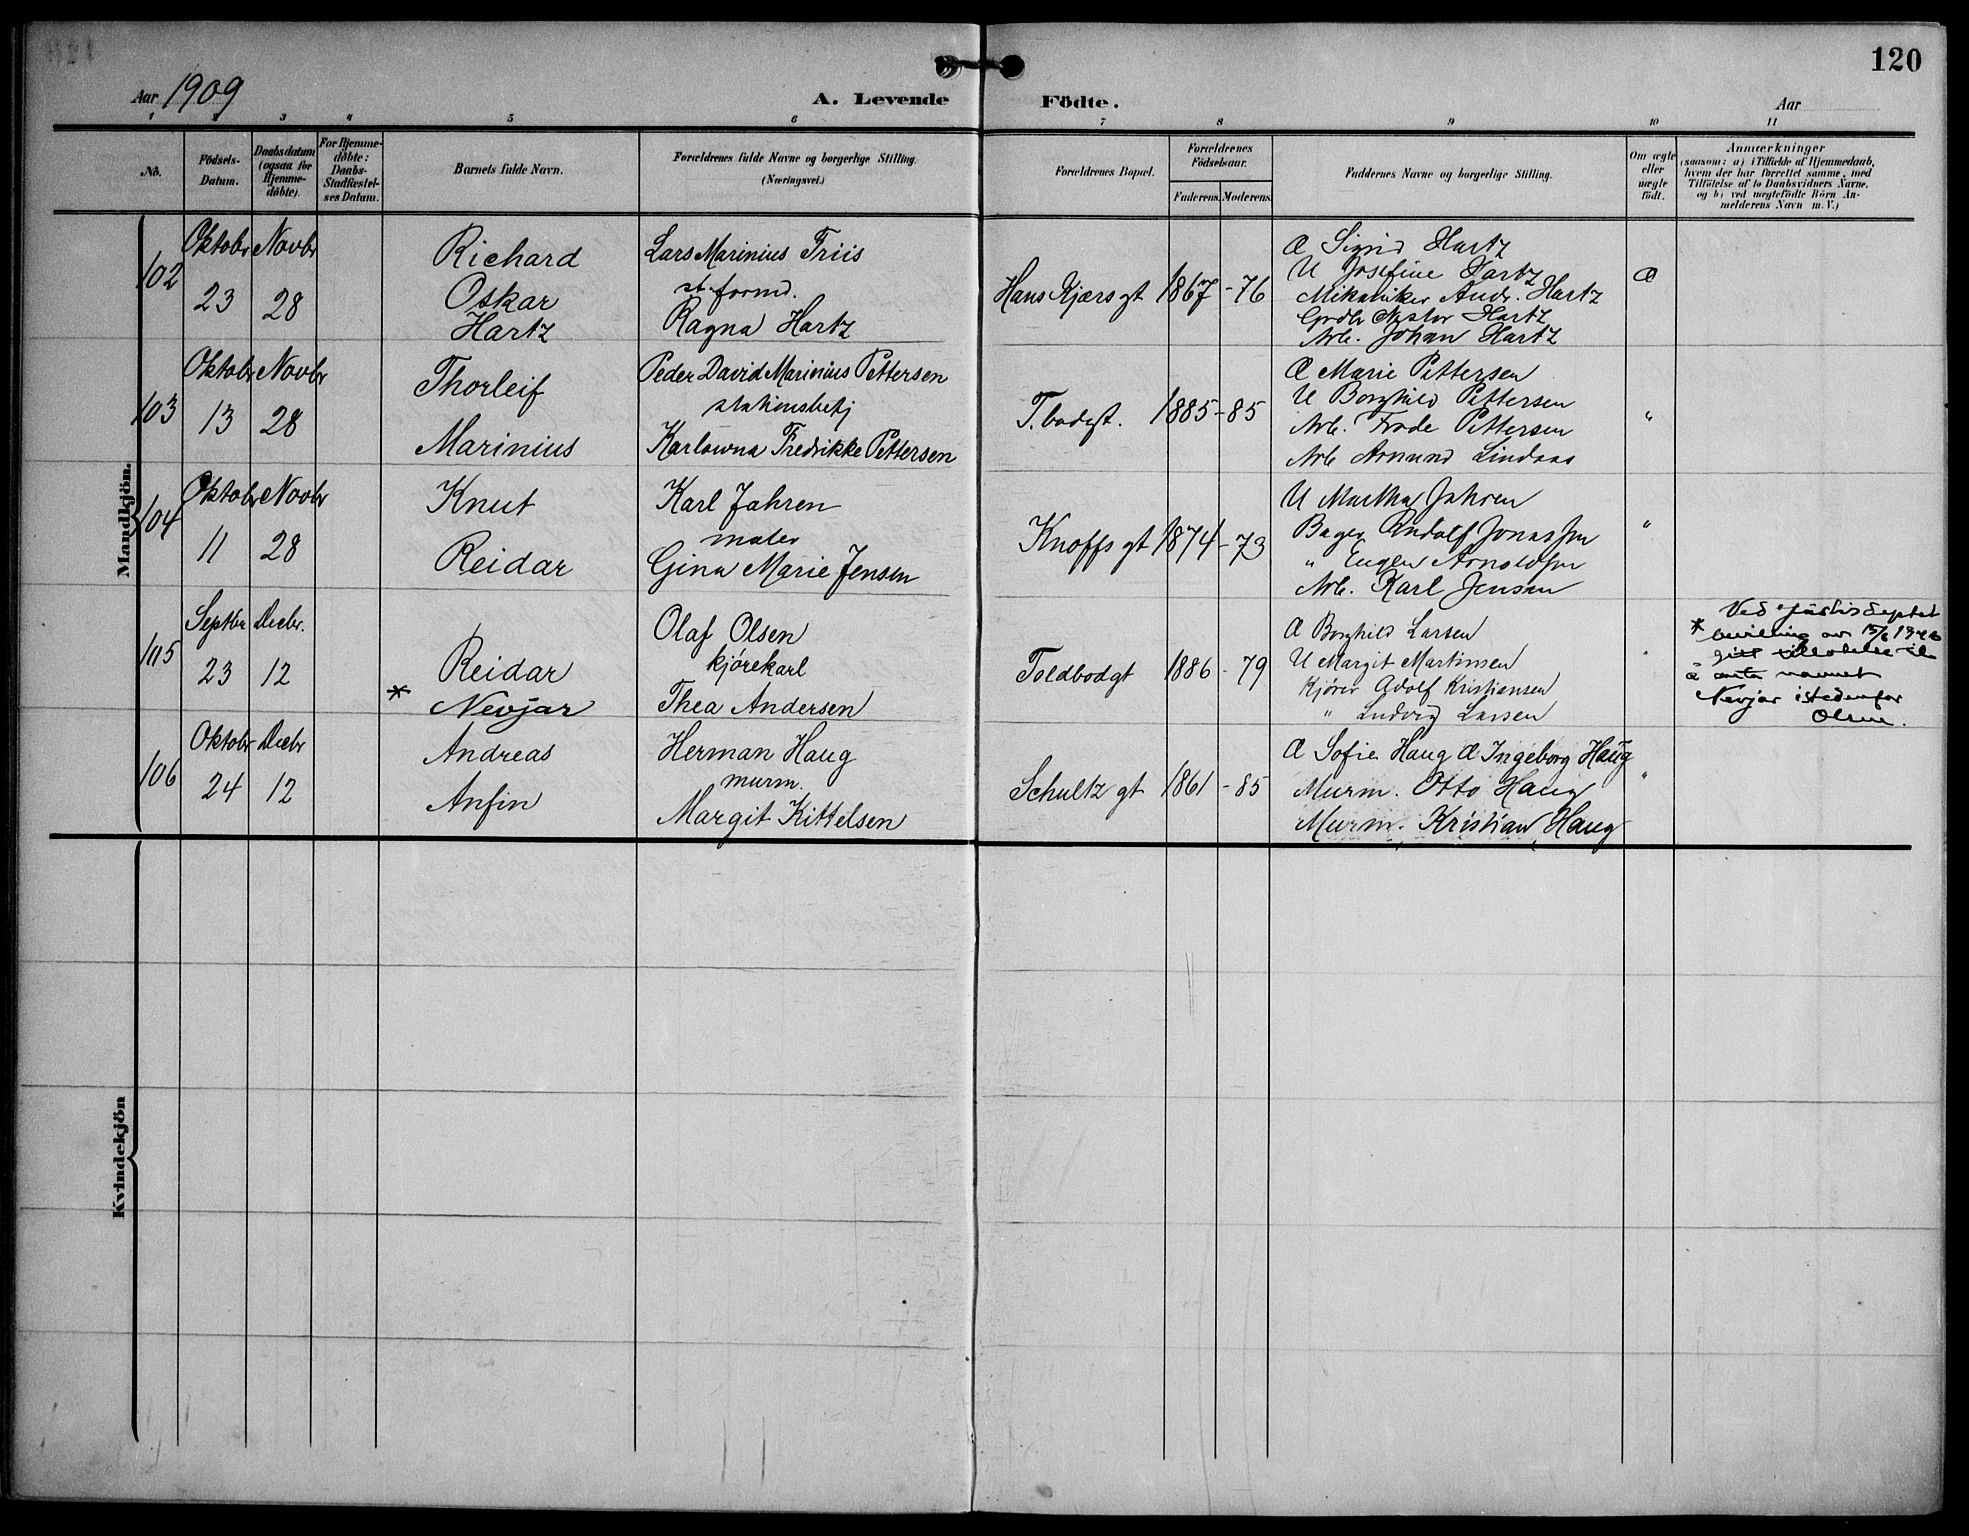 120
Aar 1909
A. Levende Födte.
Aar
1 2 3 4 5 6 7 8 9 10 11
No.
Födsels-Datum.
Daabsdatum (ogsaa for Hjemme-döbte).
For Hjemme-döbte: Daabs-Stadfæstel-ses Datum.
Barnets fulde Navn.
Forældrenes fulde Navne og borgerlige Stilling.
(Næringsvei.)
Forældrenes Bopæl.
Forældrenes Födselsaar.
Faderens. Moderens.
Faddernes Navne og borgerlige Stilling.
Om ægte eller uægte födt.
Anmærkninger
(saasom: a) i Tilfælde af Hjemmedaab,
hvem der har forrettet samme, med
Tilföielse af to Daabsvidners Navne,
og b) ved uægtefödte Börn An-
melderens Navn m. V.)
Mandkjön.
102
Oktobr 23
Novbr 28
Richard
Oskar
Hartz
Lars Marinius Friis
st. formd.
Ragna Hartz
Hans Kjærs gt
1867 - 76
Æ Sigrid Hartz
U Josefine Hartz
Mikaniker Andr. Hartz
Hartz
Arb. Johan Hartz
Æ
103
Oktobr 13
Novbr 28
Thorleif
Marinius
Peder David Marinius Pettersen
stationsbetj
Karlowna Fredrikke Pettersen
T.bodgt.
1885 - 85
Æ Marie Pettersen
U Borghild Pettersen
Arb. Frode Pettersen
Arb Armund Lindaas
"
104
Oktobr 11
Novbr 28
Knut
Reidar
Karl Jahren
maler
Gina Marie Jensen
Knoffs gt
1874 - 73
U Martha Jahren
Bager Rudolf Jonassen
" Eugen Arnoldsen
Arb. Karl Jensen
"
105
Septbr 23
Decbr. 12
Reidar
* Nevjar
Olaf Olsen
kjørekarl
Thea Andersen
Toldbodgt
1886 - 79
Æ Borghild Larsen
U Margit Martinsen
Kjører Adolf Kristiansen
" Ludvig Larsen
"
Ved Justisdeptet
* bevilling av
gitt tillatelse til
å anta navnet
Nevjar istedenfor
Olsen.
106
Oktobr 24
Decbr 12
Andreas
Anfin
Herman Haug
murm.
Margit Kittelsen
Schultz gt
1861 - 85
Æ Sofie Haug Æ Ingeborg Haug
Murm. Otto Haug
Murm. Kristian Haug
"
Kvindekjön